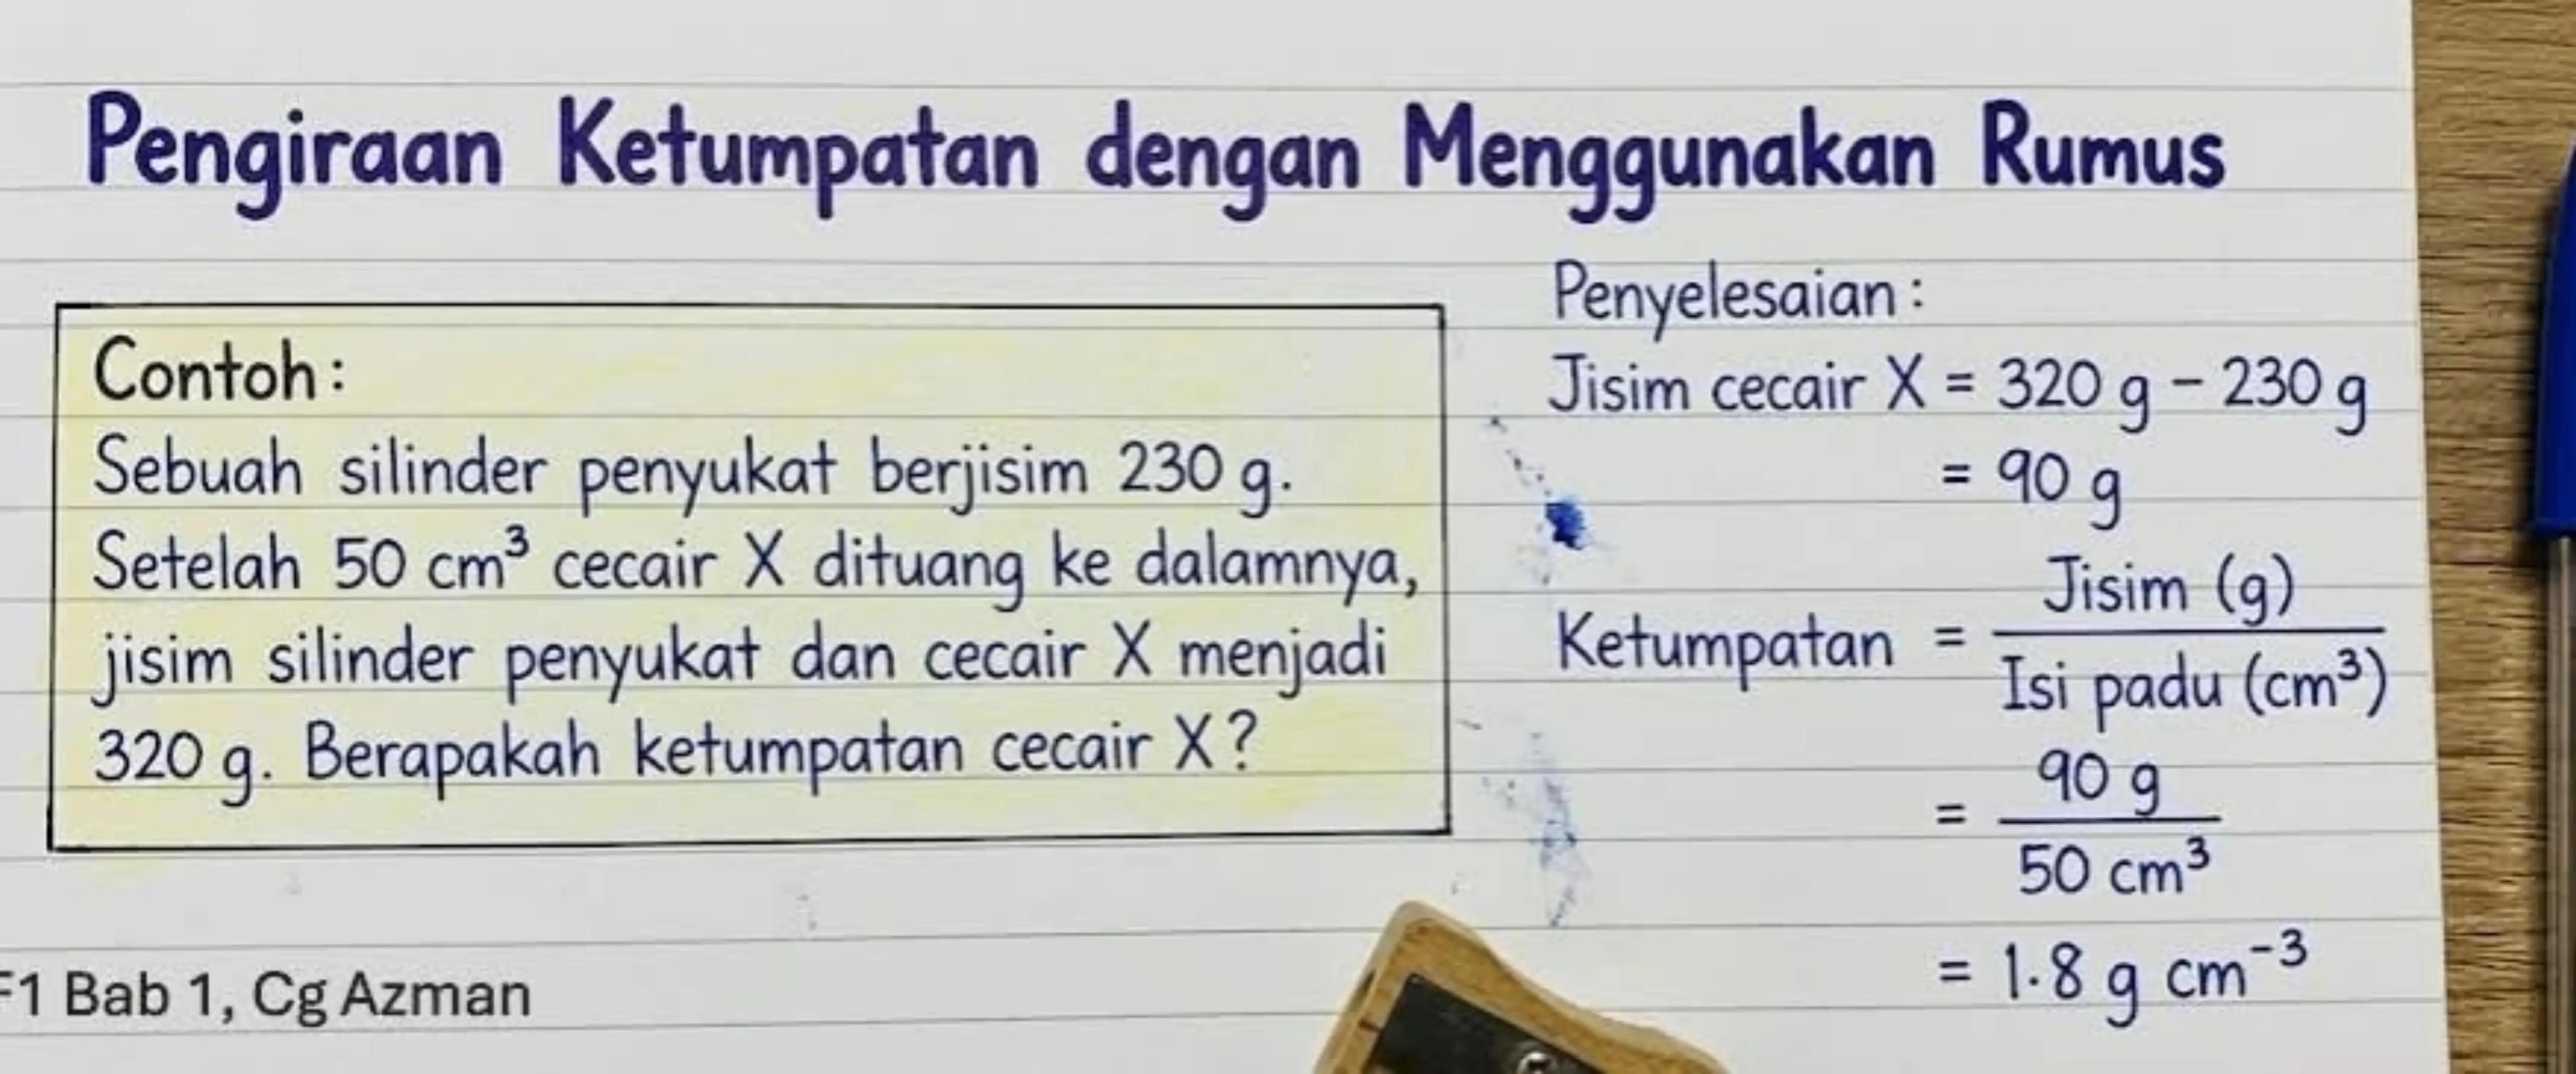 Pengiraan Ketumpatan dengan Menggunakan Rumus
Contoh:
Sebuah silinder penyukat berjisim 230 g.
Setelah 50 cm³ cecair X dituang ke dalamnya,
jisim silinder penyukat dan cecair X menjadi
320 g. Berapakah ketumpatan cecair X?
Penyelesaian:
Jisim cecair X = 320 g - 230 g
= 90 g
Ketumpatan = Jisim (g) / Isi padu (cm³)
= 90 g / 50 cm³
= 1.8 g cm⁻³
F1 Bab 1, Cg Azman